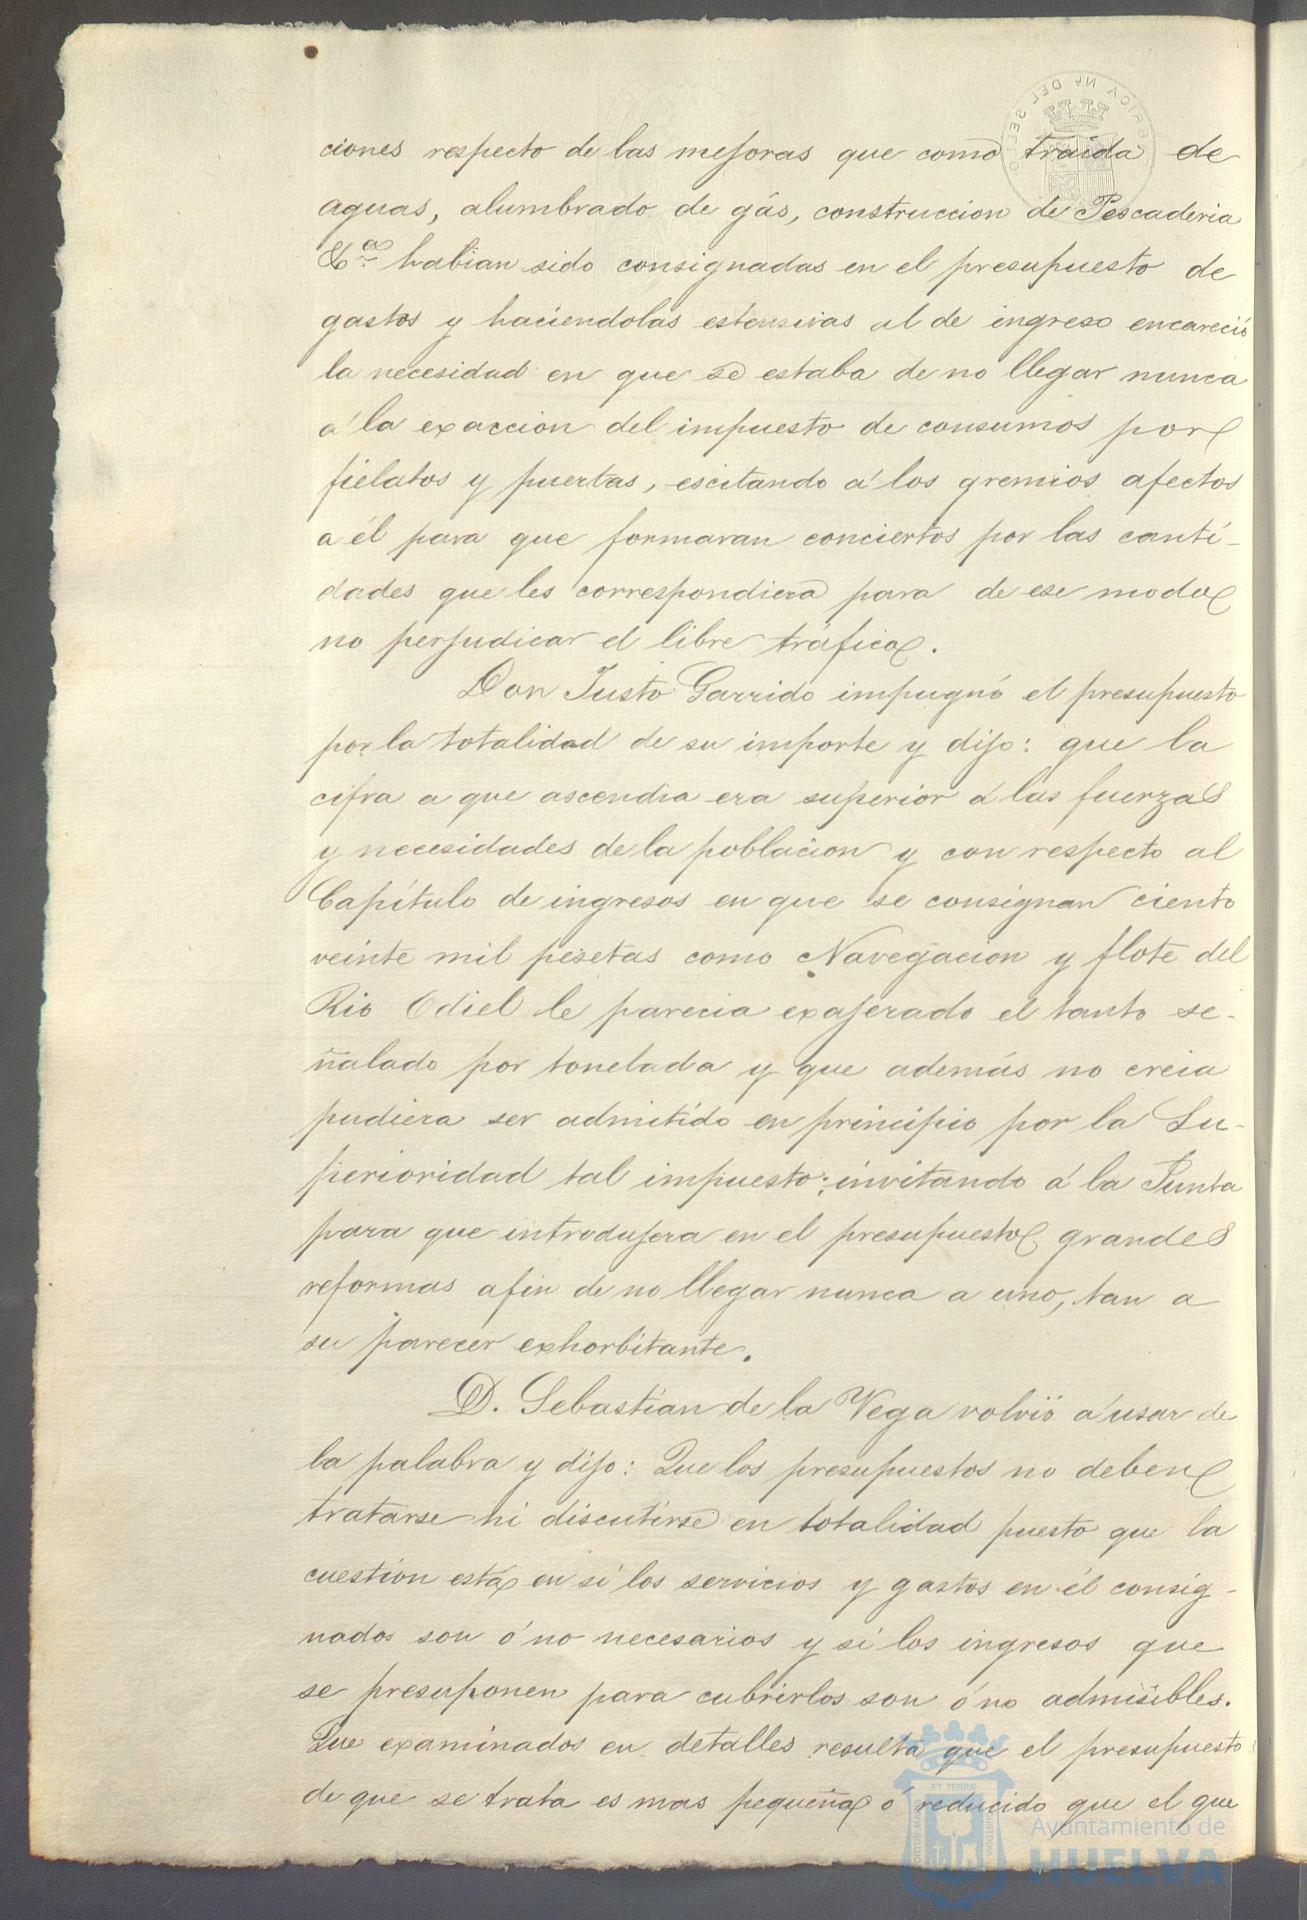 ciones respecto de las mejoras que como traida de
aguas, alumbrado de gás, construccion de Pescaderia
&ª habian sido consignadas en el presupuesto de
gastos y haciendolas estensivas al de ingreso encareció
la necesidad en que se estaba de no llegar nunca
á la exaccion del impuesto de consumos por
fielatos y puertas, escitando á los gremios afectos
a él para que formaran conciertos por las canti-
dades que les correspondiera para de ese modo
no perjudicar el libre tráfico.
Don Justo Garrido impugnó el presupuesto
por la totalidad de su importe y dijo: que la
cifra a que ascendia era superior á las fuerzas
y necesidades de la poblacion y con respecto al
Capítulo de ingresos en que se consignan ciento
veinte mil pesetas como Navegacion y flote del
Rio Odiel le parecia exajerado el tanto se-
ñalado por tonelada y que además no creia
pudiera ser admitido en principio por la Su-
perioridad tal impuesto; invitando á la Junta
para que introdujera en el presupuesto grandes
reformas afin de no llegar nunca a uno, tan a
su parecer exhorbitante.
D. Sebastian de la Vega volvió á usar de
la palabra y dijo: Que los presupuestos no deben
tratarse ni discutirse en totalidad puesto que la
cuestion está en si los servicios y gastos en él consig-
nados son ó no necesarios y si los ingresos que
se presuponen para cubrirlos son ó no admisibles.
Que examinados en detalles resulta que el presupuesto
de que se trata es mas pequeño ó reducido que el que
Ayuntamiento de
HUELVA